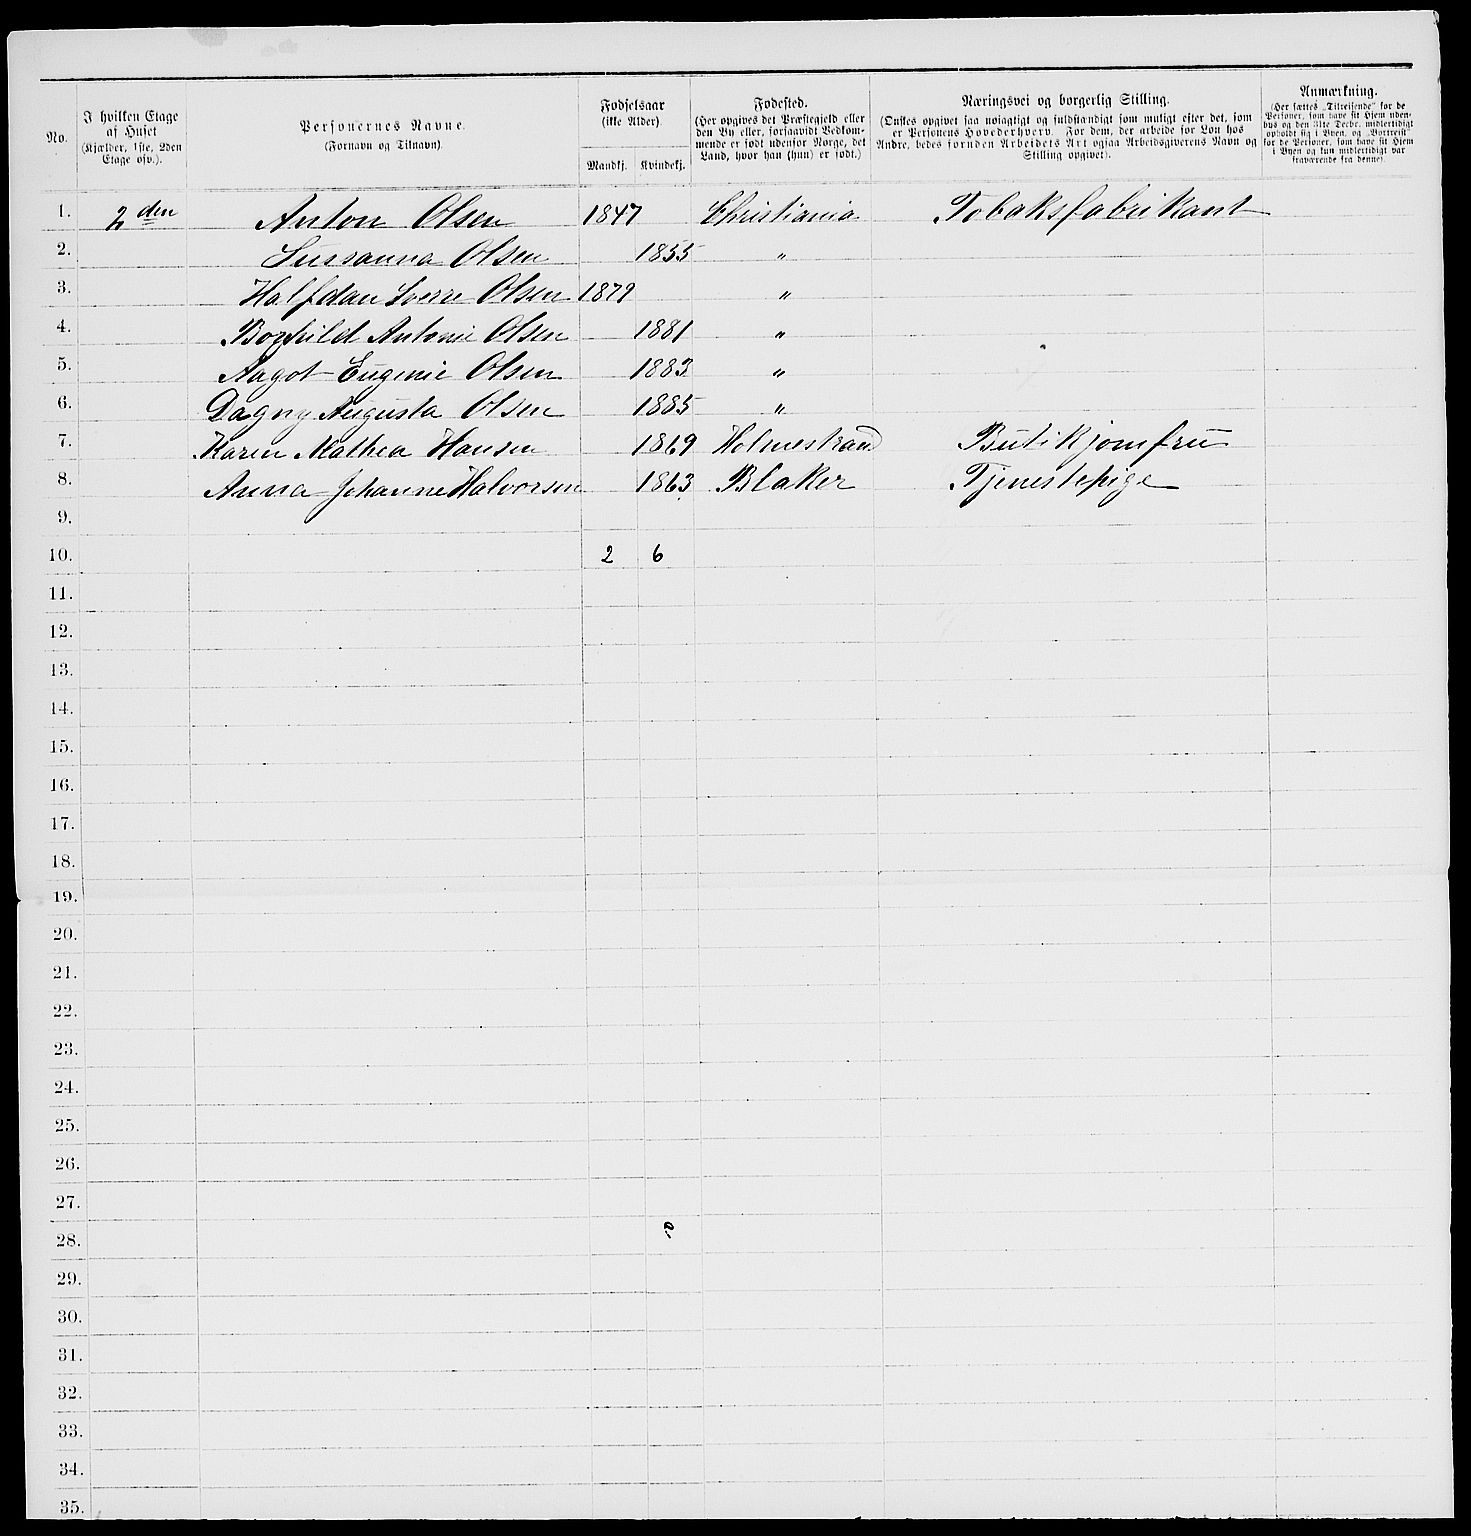 No.
I hvilken Etage
af Huset
(Kjælder, 1ste, 2den
Etage osv.).
Personernes Navne.
(Fornavn og Tilnavn).
Fødselsaar
(ikke Alder).
Mandkj. Kvindekj.
Fødested.
(Her opgives det Præstegjeld eller
den By eller, forsaavidt Vedkom-
mende er født udenfor Norge, det
Land, hvor han (hun) er født.)
Næringsvei og borgerlig Stilling.
(Ønskes opgivet saa nøiagtigt og fuldstændigt som muligt efter det, som
er Personens Hovederhverv. For dem, der arbeide for Løn hos
Andre, bedes foruden Arbeidets Art ogsaa Arbeidsgiverens Navn og
Stilling opgivet).
Anmærkning.
(Her sættes „Tilreisende" for de
Personer, som have sit Hjem uden-
bys og den 31te Decbr. midlertidigt
opholdt sig i Byen, og „Bortreist"
for de Personer, som have sit Hjem
i Byen og kun midlertidigt var
fraværende fra denne).
1. 2den Anton Olsen 1847 Christiania Tobaksfabrikant
2. Sussanna Olsen 1855 "
3. Halfdan Sverre Olsen 1879 "
4. Borghild Antonie Olsen 1881 "
5. Aagot Eugenie Olsen 1883 "
6. Dagny Augusta Olsen 1885 "
7. Karen Mathea Hansen 1869 Holmestrand Butikjomfru
8. Anna Johanne Halvorsen 1863 Blaker Tjenestepige
9.
10. 2 6
11.
12.
13.
14.
15.
16.
17.
18.
19.
20.
21.
22.
23.
24.
25.
26.
27.
28.
29.
30.
31.
32.
33.
34.
35.